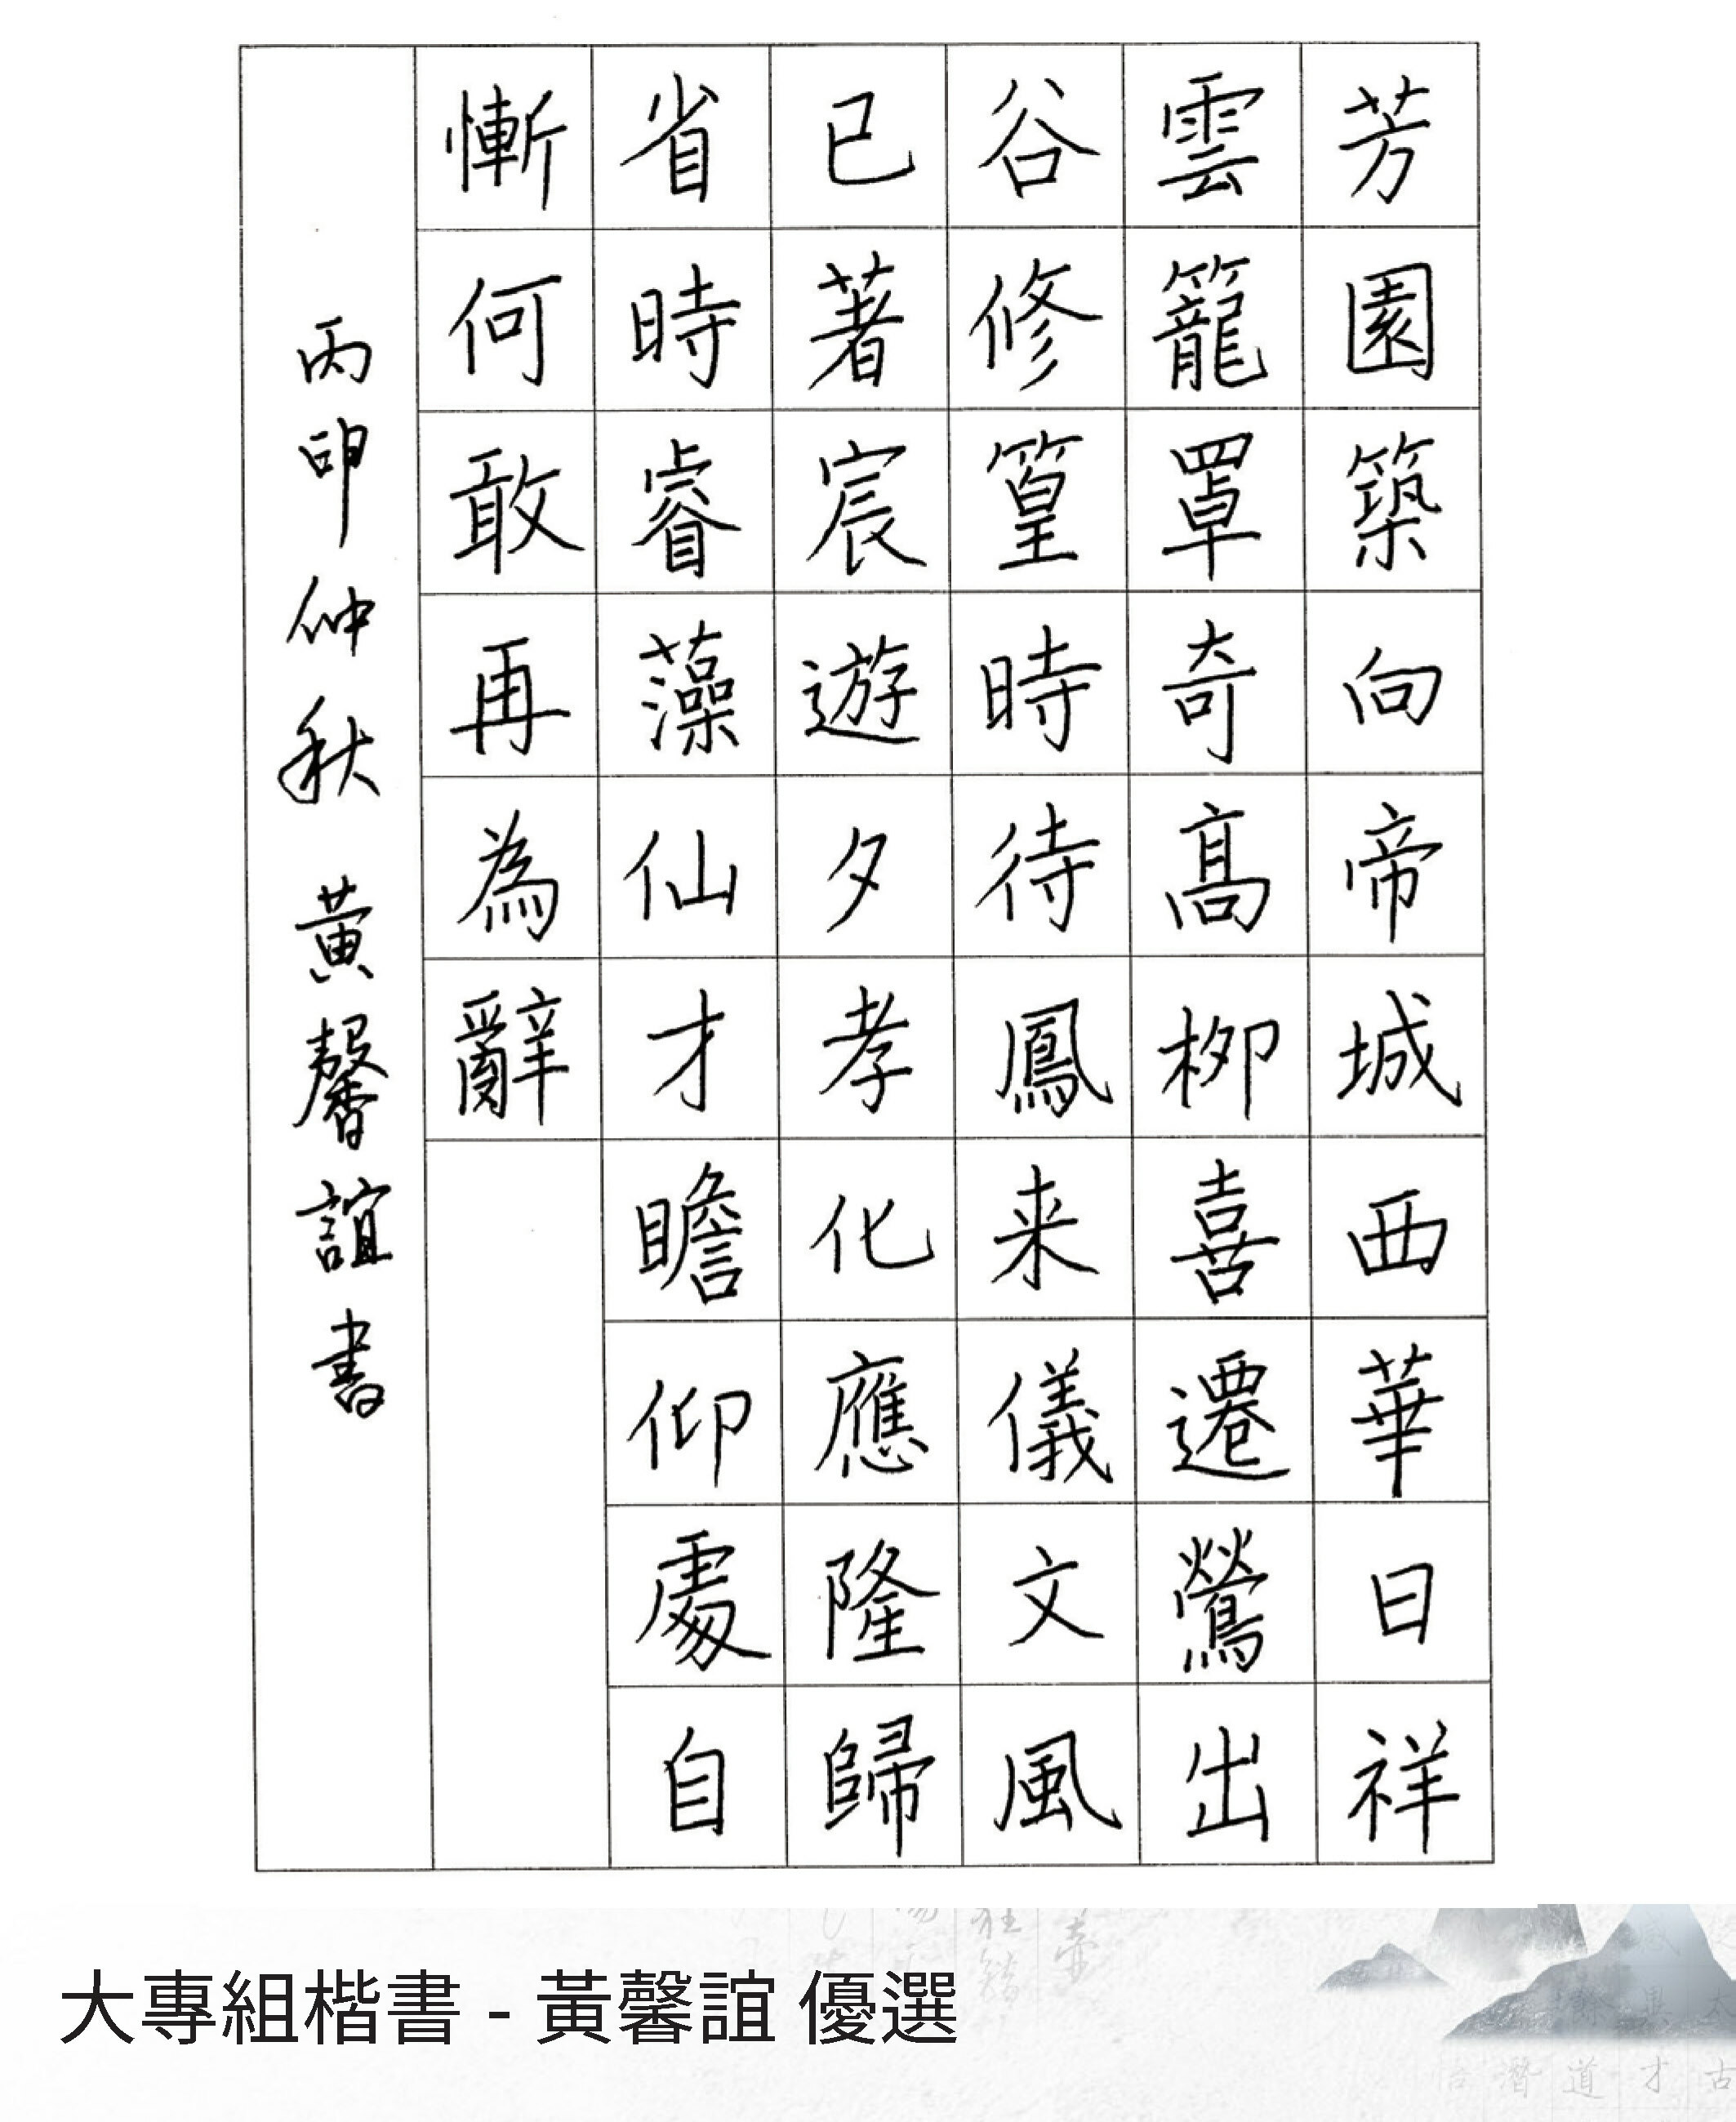 芳園築向帝城西華日祥
雲籠罩奇高柳喜遷鶯出
谷修篁時待鳳来儀文風
已著宸遊夕孝化應隆歸
省時睿藻仙才瞻仰處自
慚何敢再為辭
丙申仲秋 黃馨誼書
大專組楷書 - 黃馨誼 優選